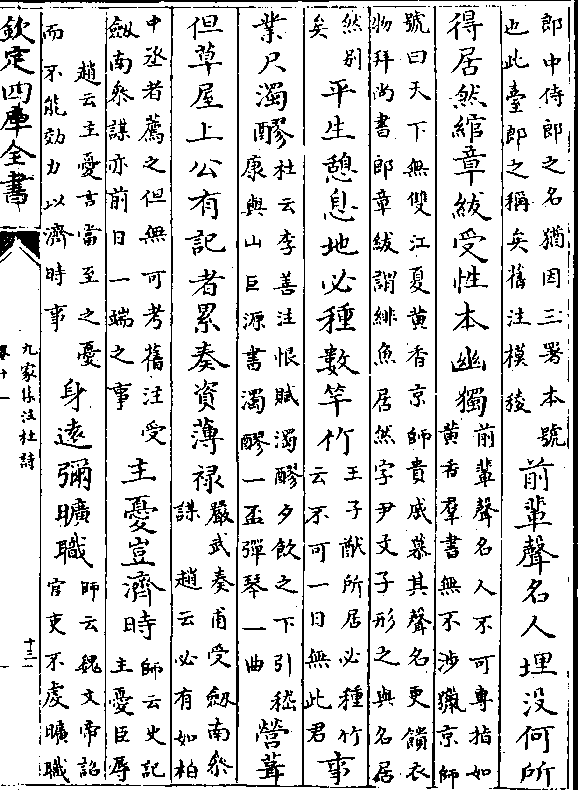 郎中侍郎之名猶因三署本號
也此臺郎之稱矣舊注模稜
前輩聲名人埋没何所
得居然綰章紱受性本幽獨
前輩聲名人不可專指如
黄香羣書無不涉獵京師
號曰天下無雙江夏黄香京師貴戚慕其聲名更饋衣
物拜尚書郎章紱謂緋魚居然字尹文子形之與名居
然别
矣
平生憩息地必種數竿竹
王子猷所居必種竹
云不可一日無此君
事
業只濁醪
杜云李善注恨賦濁醪夕飲之下引嵇
康與山巨源書濁醪一盃彈琴一曲
營葺
但草屋上公有記者累奏資薄禄
嚴武奏甫受劔南叅
謀 趙云必有如柏
中丞者薦之但無可考舊注受
劔南叅謀亦前日一端之事
主憂豈濟時
師云史記
主憂臣辱
趙云主憂言當至之憂
而不能効力以濟時事
身遠彌曠職
師云魏文帝詔
官吏不虔曠職
欽定四庫全書
九家集注杜詩
卷十一
十三